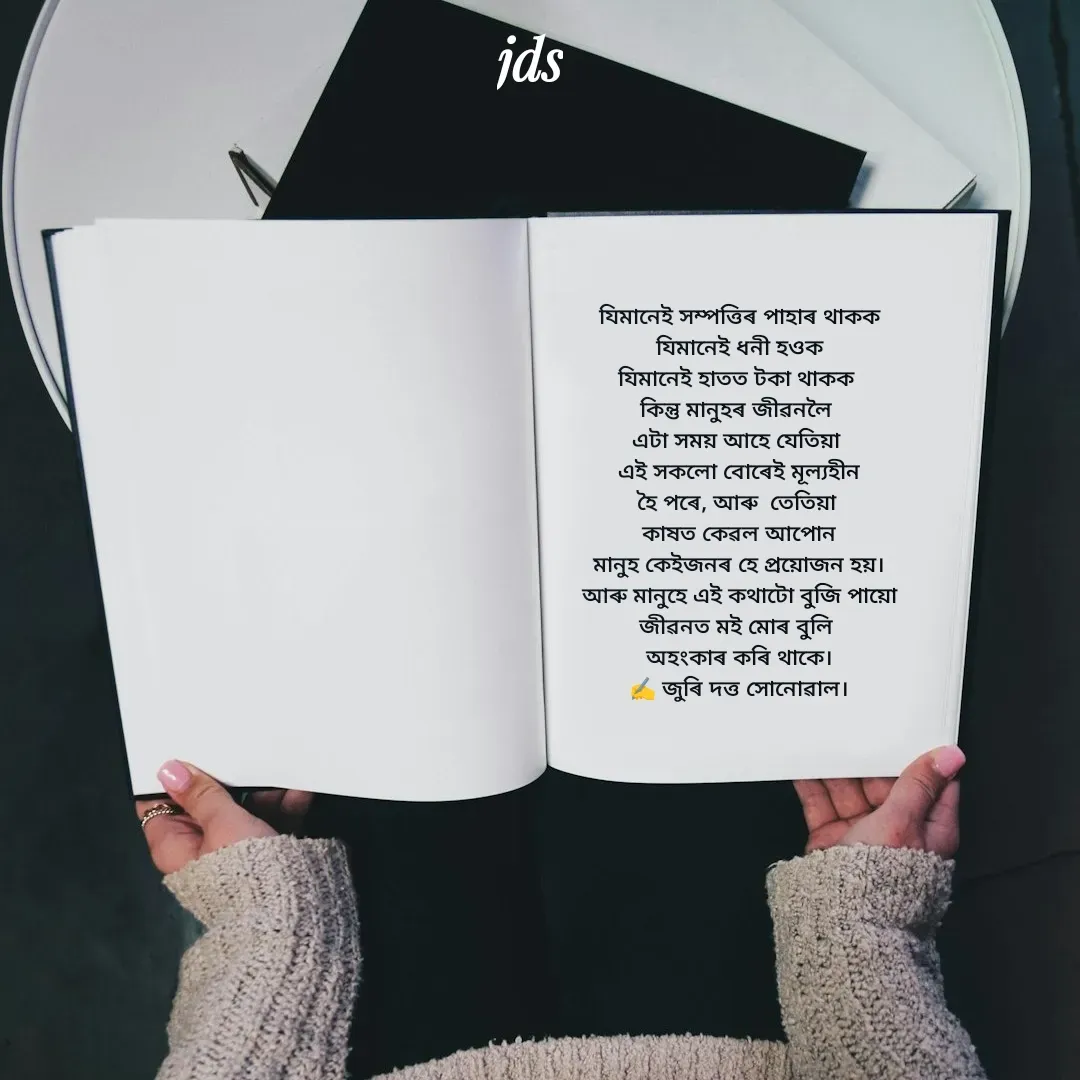 jds
যিমানেই সম্পত্তিৰ পাহাৰ থাকক
যিমানেই ধনী হওক
যিমানেই হাতত টকা থাকক
কিন্তু মানুহৰ জীৱনলৈ
এটা সময় আহে যেতিয়া
এই সকলো বোৰেই মূল্যহীন
হৈ পৰে, আৰু তেতিয়া
কাষত কেৱল আপোন
মানুহ কেইজনৰ হে প্ৰয়োজন হয়।
আৰু মানুহে এই কথাটো বুজি পায়ো
জীৱনত মই মোৰ বুলি
অহংকাৰ কৰি থাকে।
✍️ জুৰি দত্ত সোনোৱাল।